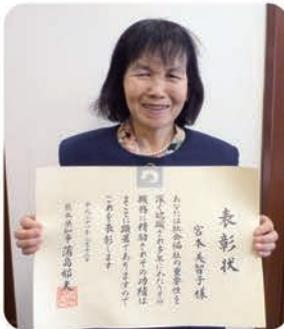 表彰状
宮本美智子様
あなたは社会福祉の重要性を
深く認識され多年にわたりその
職務に精励されその功績は
まことに顕著でありますので
これを表彰します
熊本県知事 蒲島郁夫